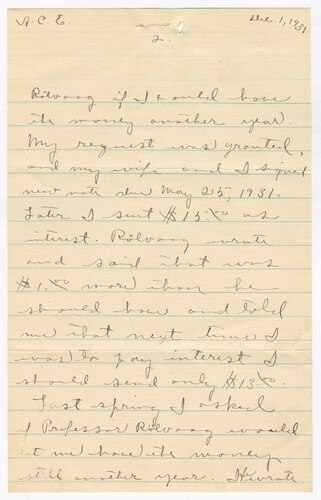 A. C. E.
Dec. 1, 1931
2.
Rölvaag if I could have
the money another year.
My request was granted,
and my wife and I signed
new note due May 25, 1931.
Later I sent $15.00 as
interest. Rölvaag wrote
and said that was
$1.00 more than he
should have and told
me that next time I
was to pay interest I
should send only $13.00.
Last spring I asked
if Professor Rölvaag would
let me have the money
still another year. He wrote